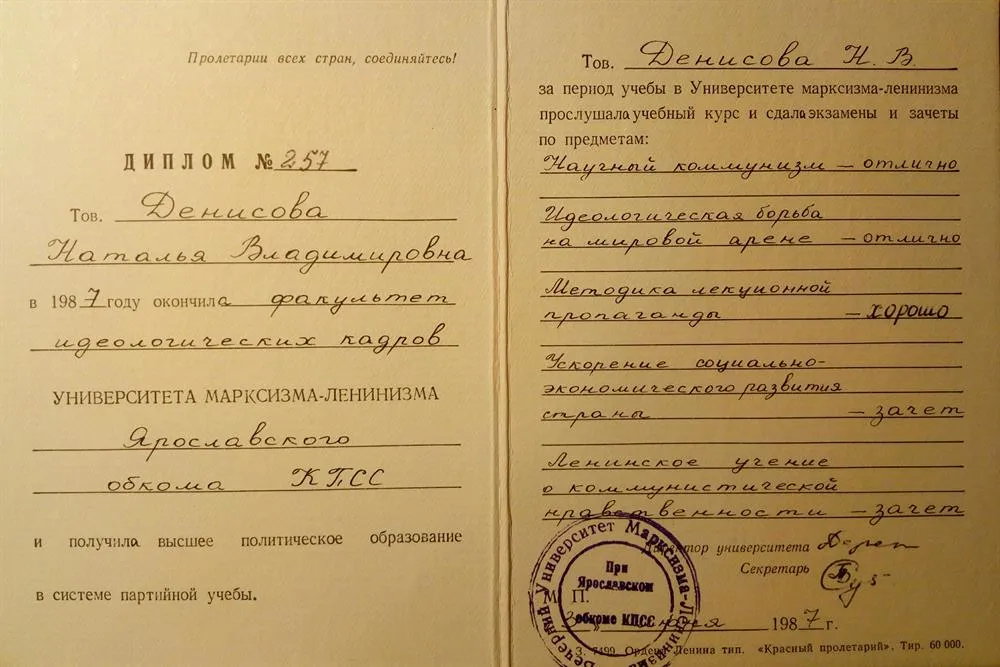 Пролетарии всех стран, соединяйтесь!
ДИПЛОМ № 257
Тов. Денисова
Наталья Владимировна
в 1987 году окончила факультет
идеологических кадров
УНИВЕРСИТЕТА МАРКСИЗМА-ЛЕНИНИЗМА
Ярославского
обкома КПСС
и получила высшее политическое образование
в системе партийной учебы.
Тов. Денисова Н. В.
за период учебы в Университете марксизма-ленинизма
прослушала учебный курс и сдала экзамены и зачеты
по предметам:
Научный коммунизм — отлично
Идеологическая борьба
на мировой арене — отлично
Методика лекционной
пропаганды — хорошо
Ускорение социально-
экономического развития
страны — зачет
Ленинское учение
о коммунистической
нравственности — зачет
Директор университета
Секретарь
М. П.
1987 г.
Вечерний Университет Марксизма-Ленинизма
При
Ярославском
обкоме КПСС
З. 7499 Ордена Ленина тип. «Красный пролетарий». Тир. 60 000.